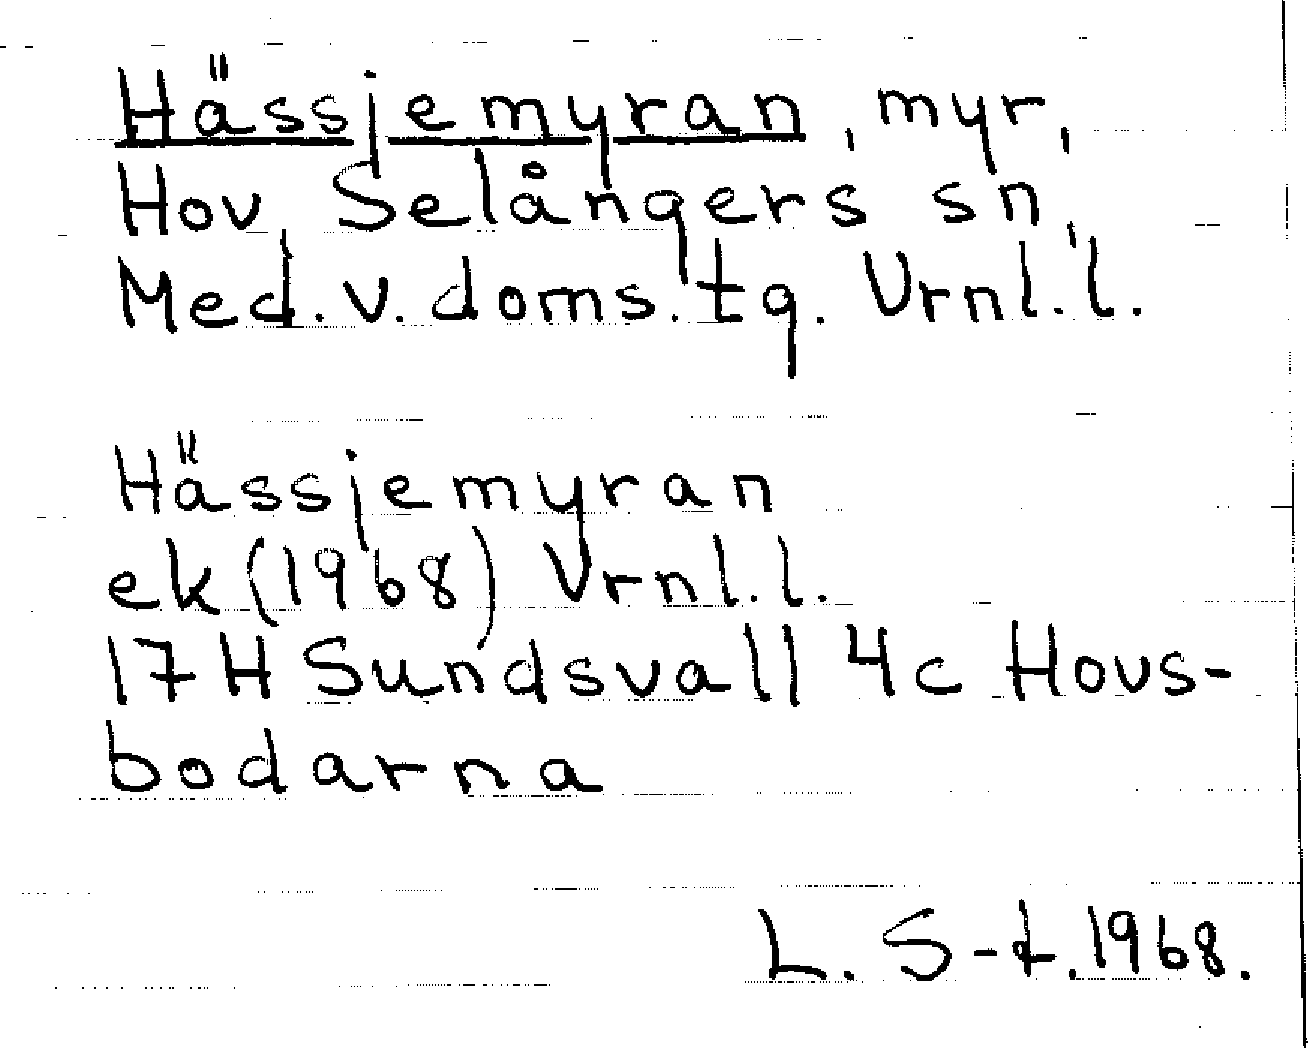 Hässjemyran, myr,
Hov, Selångers sn,
Med. v. doms. tg. Vrnl. l.
Hässjemyran
ek (1968) Vrnl. l.
17H Sundsvall 4c Hovs-
bodarna
L. S-t. 1968.